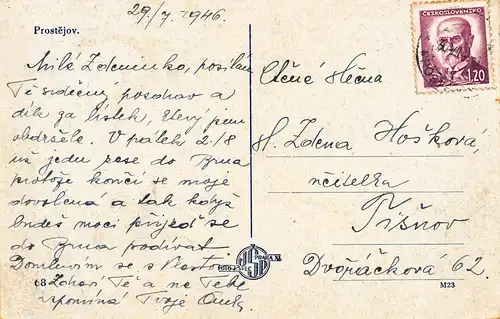 29/7. 1946.
Prostějov.
Milá Zdeninko, posílám
Ti srdečný pozdrav a
dík za lístek, který jsem
obdržela. V pátek 2./8
už jedu zase do Brna
protože končí se moje
dovolená a tak když
budeš moci přijeď se
do Brna podívat
Domluvím se s Vlastou
Zdraví Tě a na Tebe
vzpomíná Tvoje
ČESKOSLOVENSKO
1,20
Ctěná slečna
sl. Zdena Hošková,
učitelka
Tišnov
Dvořáčková 62.
68
M23